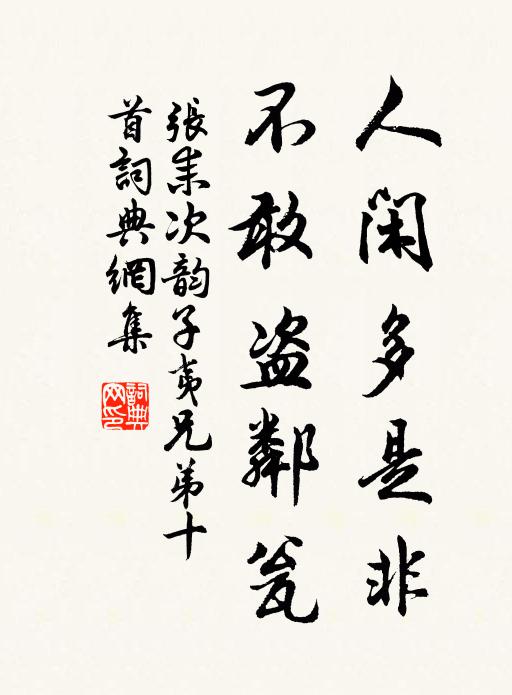 人閑多是非
不敢盗鄰瓮
張耒次韵子夷兄弟十
首詞典網集
詞典
网印